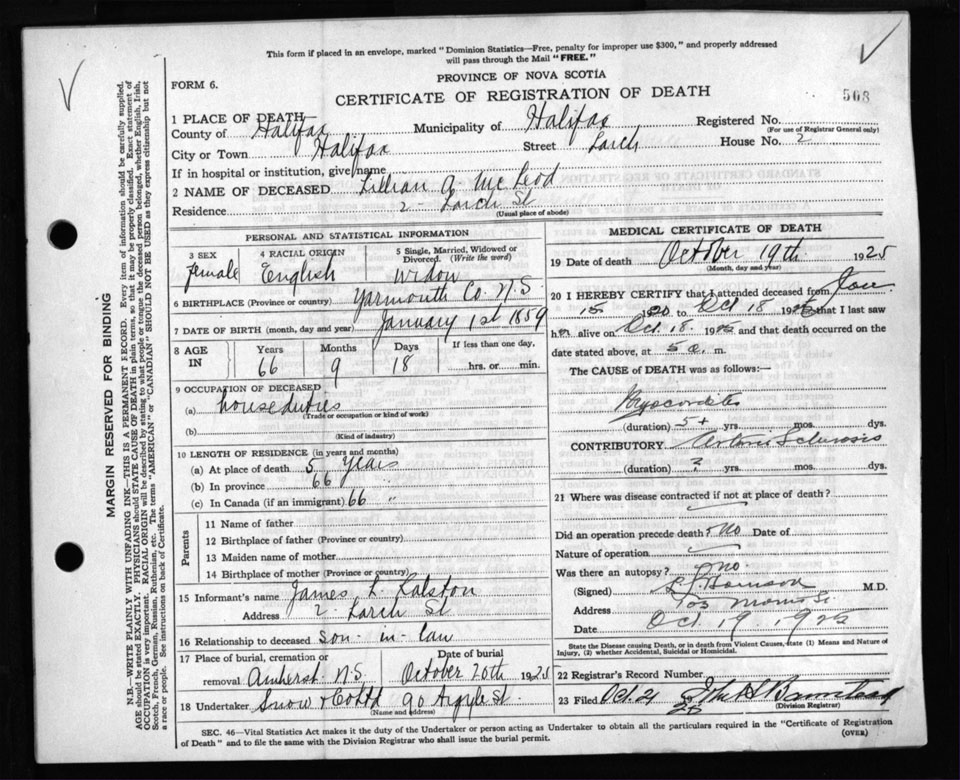 This form if placed in an envelope, marked "Dominion Statistics—Free, penalty for improper use $300," and properly addressed
will pass through the Mail "FREE."
FORM 6.
PROVINCE OF NOVA SCOTIA
CERTIFICATE OF REGISTRATION OF DEATH
568
1 PLACE OF DEATH
County of Halifax Municipality of Halifax Registered No.
(For use of Registrar General only)
City or Town Halifax Street Larch House No. 2
If in hospital or institution, give name
2 NAME OF DECEASED Lillian A. McLeod
Residence 2 - Larch St
(Usual place of abode)
PERSONAL AND STATISTICAL INFORMATION
3 SEX female
4 RACIAL ORIGIN English
5 Single, Married, Widowed or Divorced. (Write the word) Widow
6 BIRTHPLACE (Province or country) Yarmouth Co. N.S.
7 DATE OF BIRTH (month, day and year) January 1st 1859
8 AGE IN Years 66 Months 9 Days 18 If less than one day, hrs. or min.
9 OCCUPATION OF DECEASED
(a) house duties
(Trade or occupation or kind of work)
(b)
(Kind of industry)
10 LENGTH OF RESIDENCE (in years and months)
(a) At place of death 5 years
(b) In province 66 "
(c) In Canada (if an immigrant) 66 "
Parents
11 Name of father
12 Birthplace of father (Province or country)
13 Maiden name of mother
14 Birthplace of mother (Province or country)
15 Informant's name James L. Ralston
Address 2 - Larch St
16 Relationship to deceased son - in - law
17 Place of burial, cremation or removal Amherst N.S. Date of burial October 20th 1925
18 Undertaker Snow & Co Ltd 90 Argyle St.
(Name and address)
MEDICAL CERTIFICATE OF DEATH
19 Date of death October 19th 1925
(Month, day and year)
20 I HEREBY CERTIFY that I attended deceased from Jan
15 1920 to Oct 18 1925 that I last saw
her alive on Oct. 18. 1925 and that death occurred on
date stated above, at 5 a. m.
The CAUSE of DEATH was as follows:—
Myocarditis
(duration) 5+ yrs. mos. dys.
CONTRIBUTORY Arterio Sclerosis
(duration) ? yrs. mos. dys.
21 Where was disease contracted if not at place of death?
Did an operation precede death? No Date of
Nature of operation
Was there an autopsy? No.
(Signed) M.D.
Address Morris St.
Date Oct. 19 1925
State the Disease causing Death, or in death from Violent Causes, state (1) Means and Nature of
Injury, (2) whether Accidental, Suicidal or Homicidal.
22 Registrar's Record Number
23 Filed Oct 21 25
(Division Registrar)
SEC. 46—Vital Statistics Act makes it the duty of the Undertaker or person acting as Undertaker to obtain all the particulars required in the "Certificate of Registration
of Death" and to file the same with the Division Registrar who shall issue the burial permit.
(OVER)
MARGIN RESERVED FOR BINDING
N.B.—WRITE PLAINLY WITH UNFADING INK—THIS IS A PERMANENT RECORD. Every item of information should be carefully supplied.
AGE should be stated EXACTLY. PHYSICIANS should STATE CAUSE OF DEATH in plain terms, so that it may be properly classified. Exact statement of
OCCUPATION is very important. RACIAL ORIGIN will be described by stating to what people or tongue the deceased person belonged, whether English, Irish,
Scotch, French, German, Russian, Ruthenian, etc. The terms "AMERICAN" or "CANADIAN" SHOULD NOT BE USED as they express citizenship but not
a race or people. See instructions on back of Certificate.